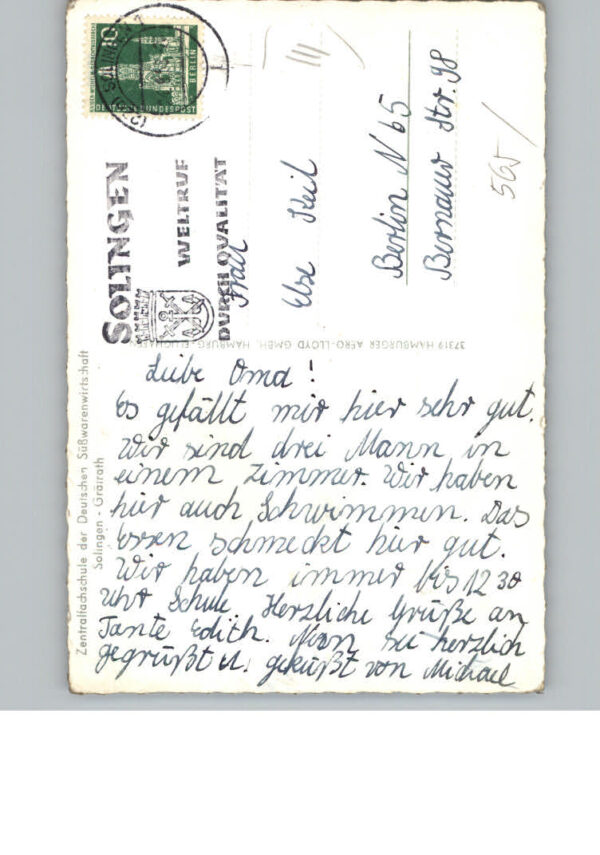 10
BERLIN
DEUTSCHE BUNDESPOST
SOLINGEN
WELTRUF
DURCH QUALITÄT
Frau
Else Keil
Berlin N 65
Bernauer Str. 98
565
37319 HAMBURGER AERO-LLOYD GMBH. HAMBURG-FLUGHAFEN
Zentralfachschule der Deutschen Süßwarenwirtschaft
Solingen - Gräfrath
Liebe Oma!
Es gefällt mir hier sehr gut.
Wir sind drei Mann in
einem Zimmer. Wir haben
hier auch Schwimmen. Das
Essen schmeckt hier gut.
Wir haben immer bis 12 30
Uhr Schule. Herzliche Grüße an
Tante Edith. Nun sei herzlich
gegrüßt u. geküßt von Michael